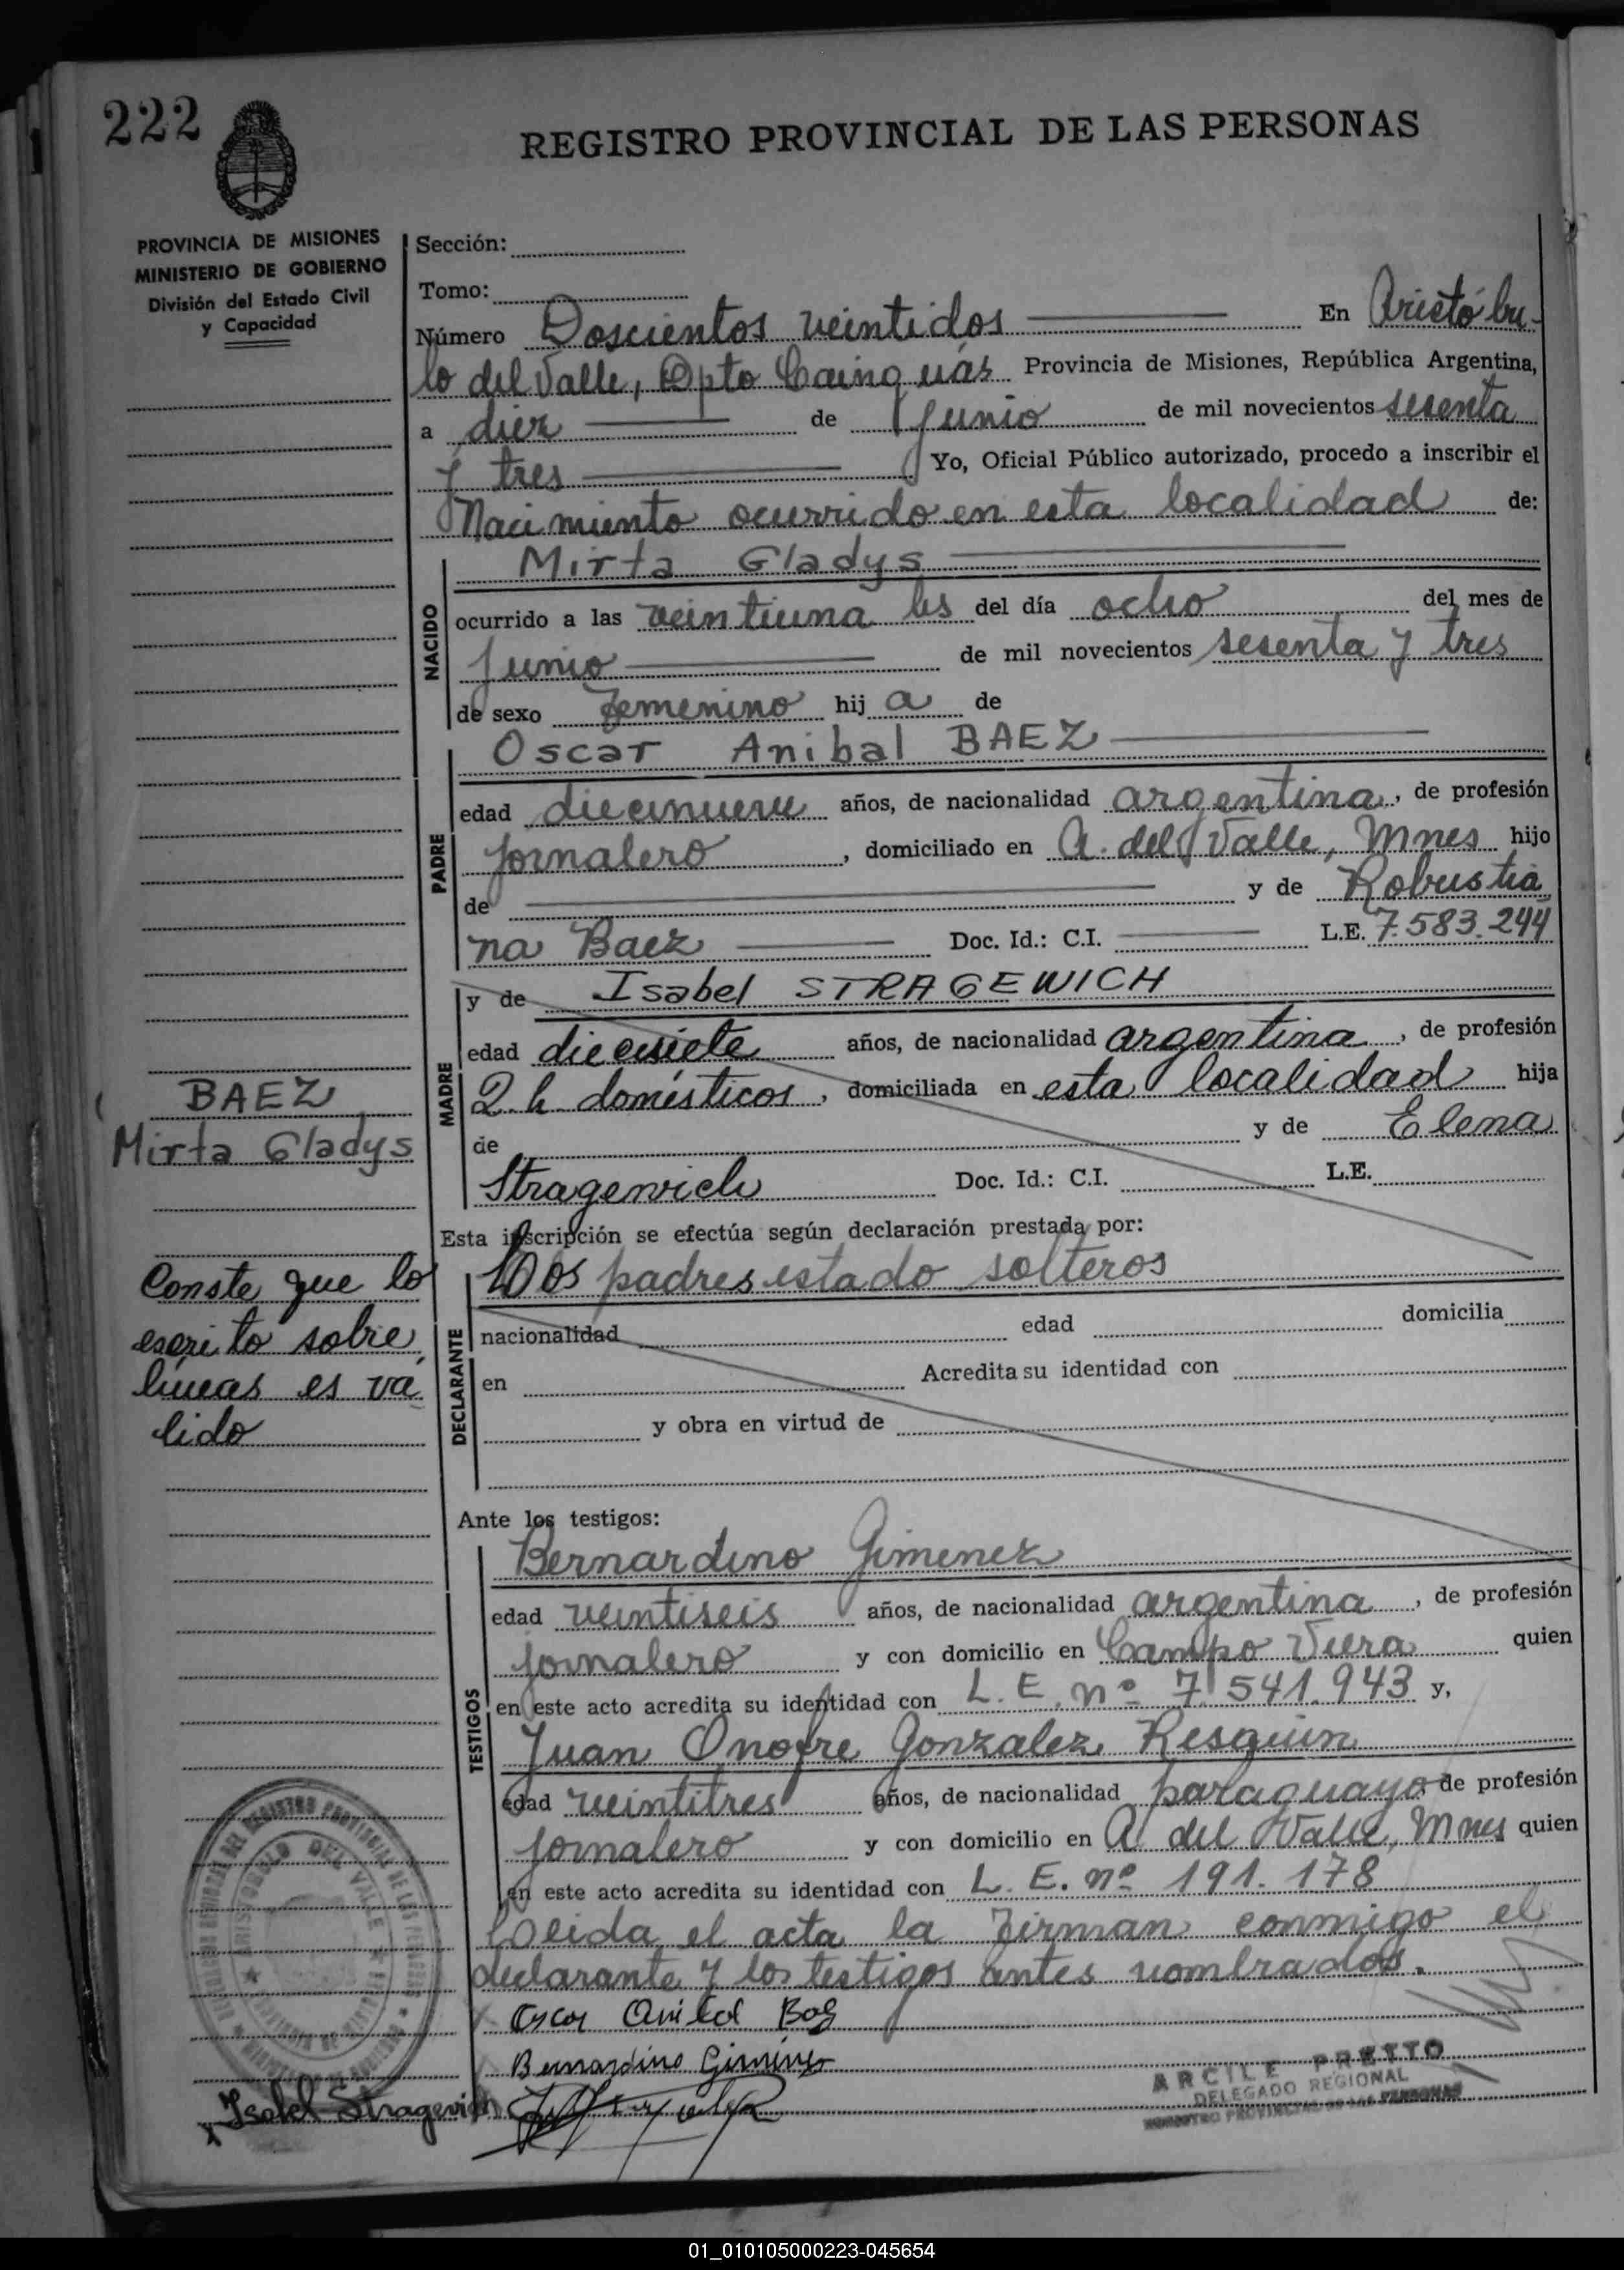 222
REGISTRO PROVINCIAL DE LAS PERSONAS
PROVINCIA DE MISIONES
MINISTERIO DE GOBIERNO
División del Estado Civil
y Capacidad
Sección:
Tomo:
Número Doscientos veintidos En Aristóbu-
lo del Valle, Dpto Cainguás Provincia de Misiones, República Argentina,
a diez de Junio de mil novecientos sesenta
y tres Yo, Oficial Público autorizado, procedo a inscribir el
Nacimiento ocurrido en esta localidad de:
NACIDO
Mirta Gladys
ocurrido a las veintiuna hs del día ocho del mes de
Junio de mil novecientos sesenta y tres
de sexo femenino hij a de
PADRE
Oscar Anibal BAEZ
edad diecinueve años, de nacionalidad argentina, de profesión
jornalero, domiciliado en A. del Valle, Mnes hijo
de y de Robustia
na Baez Doc. Id.: C.I. L.E. 7.583.244
MADRE
y de Isabel STRAGEWICH
edad diecisiete años, de nacionalidad argentina, de profesión
Q.h. domésticos, domiciliada en esta localidad hija
de y de Elena
Stragewich Doc. Id.: C.I. L.E.
BAEZ
Mirta Gladys
Esta inscripción se efectúa según declaración prestada por:
DECLARANTE
Los padres estado solteros
nacionalidad edad domicilia
en Acredita su identidad con
y obra en virtud de
Conste que lo
escrito sobre
líneas es va
lido
Ante los testigos:
TESTIGOS
Bernardino Gimenez
edad veintiseis años, de nacionalidad argentina, de profesión
jornalero y con domicilio en Campo Viera quien
en este acto acredita su identidad con L.E. nº 7.541.943 y,
Juan Onofre Gonzalez Resquin
edad veintitres años, de nacionalidad paraguayo de profesión
jornalero y con domicilio en A. del Valle, Mnes quien
en este acto acredita su identidad con L.E. nº 191.178
Leida el acta la firman conmigo el
declarante y los testigos antes nombrados.
Oscar Anibal
Bernardino Gimenez
Isabel Stragevich
ARISTOBULO DEL VALLE
ARCILE PRETTO
DELEGADO REGIONAL
REGISTRO PROVINCIAL DE LAS PERSONAS
01_010105000223-045654